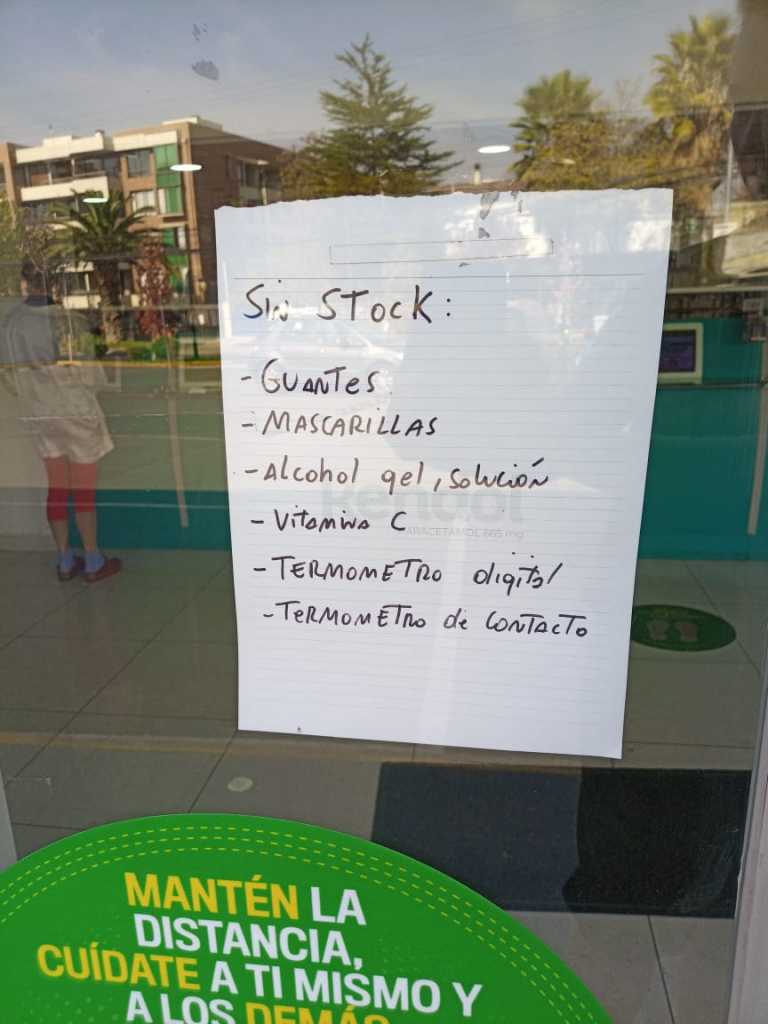 Sin STOCK:
- GUANTES
- MASCARILLAS
- Alcohol gel, solución
- Vitamina C
- TERMOMETRO digital
- TERMOMETRO de CONTACTO
Kendol
PARACETAMOL 665 mg
MANTÉN LA
DISTANCIA,
CUÍDATE A TI MISMO Y
A LOS DEMÁS